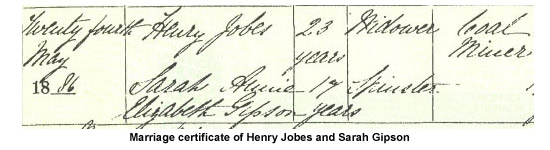 Twenty fourth Henry Jobes 23 Widower Coal
May years Miner
1886 Sarah Annie 17 Spinster
Elizabeth Gipson years
Marriage certificate of Henry Jobes and Sarah Gipson